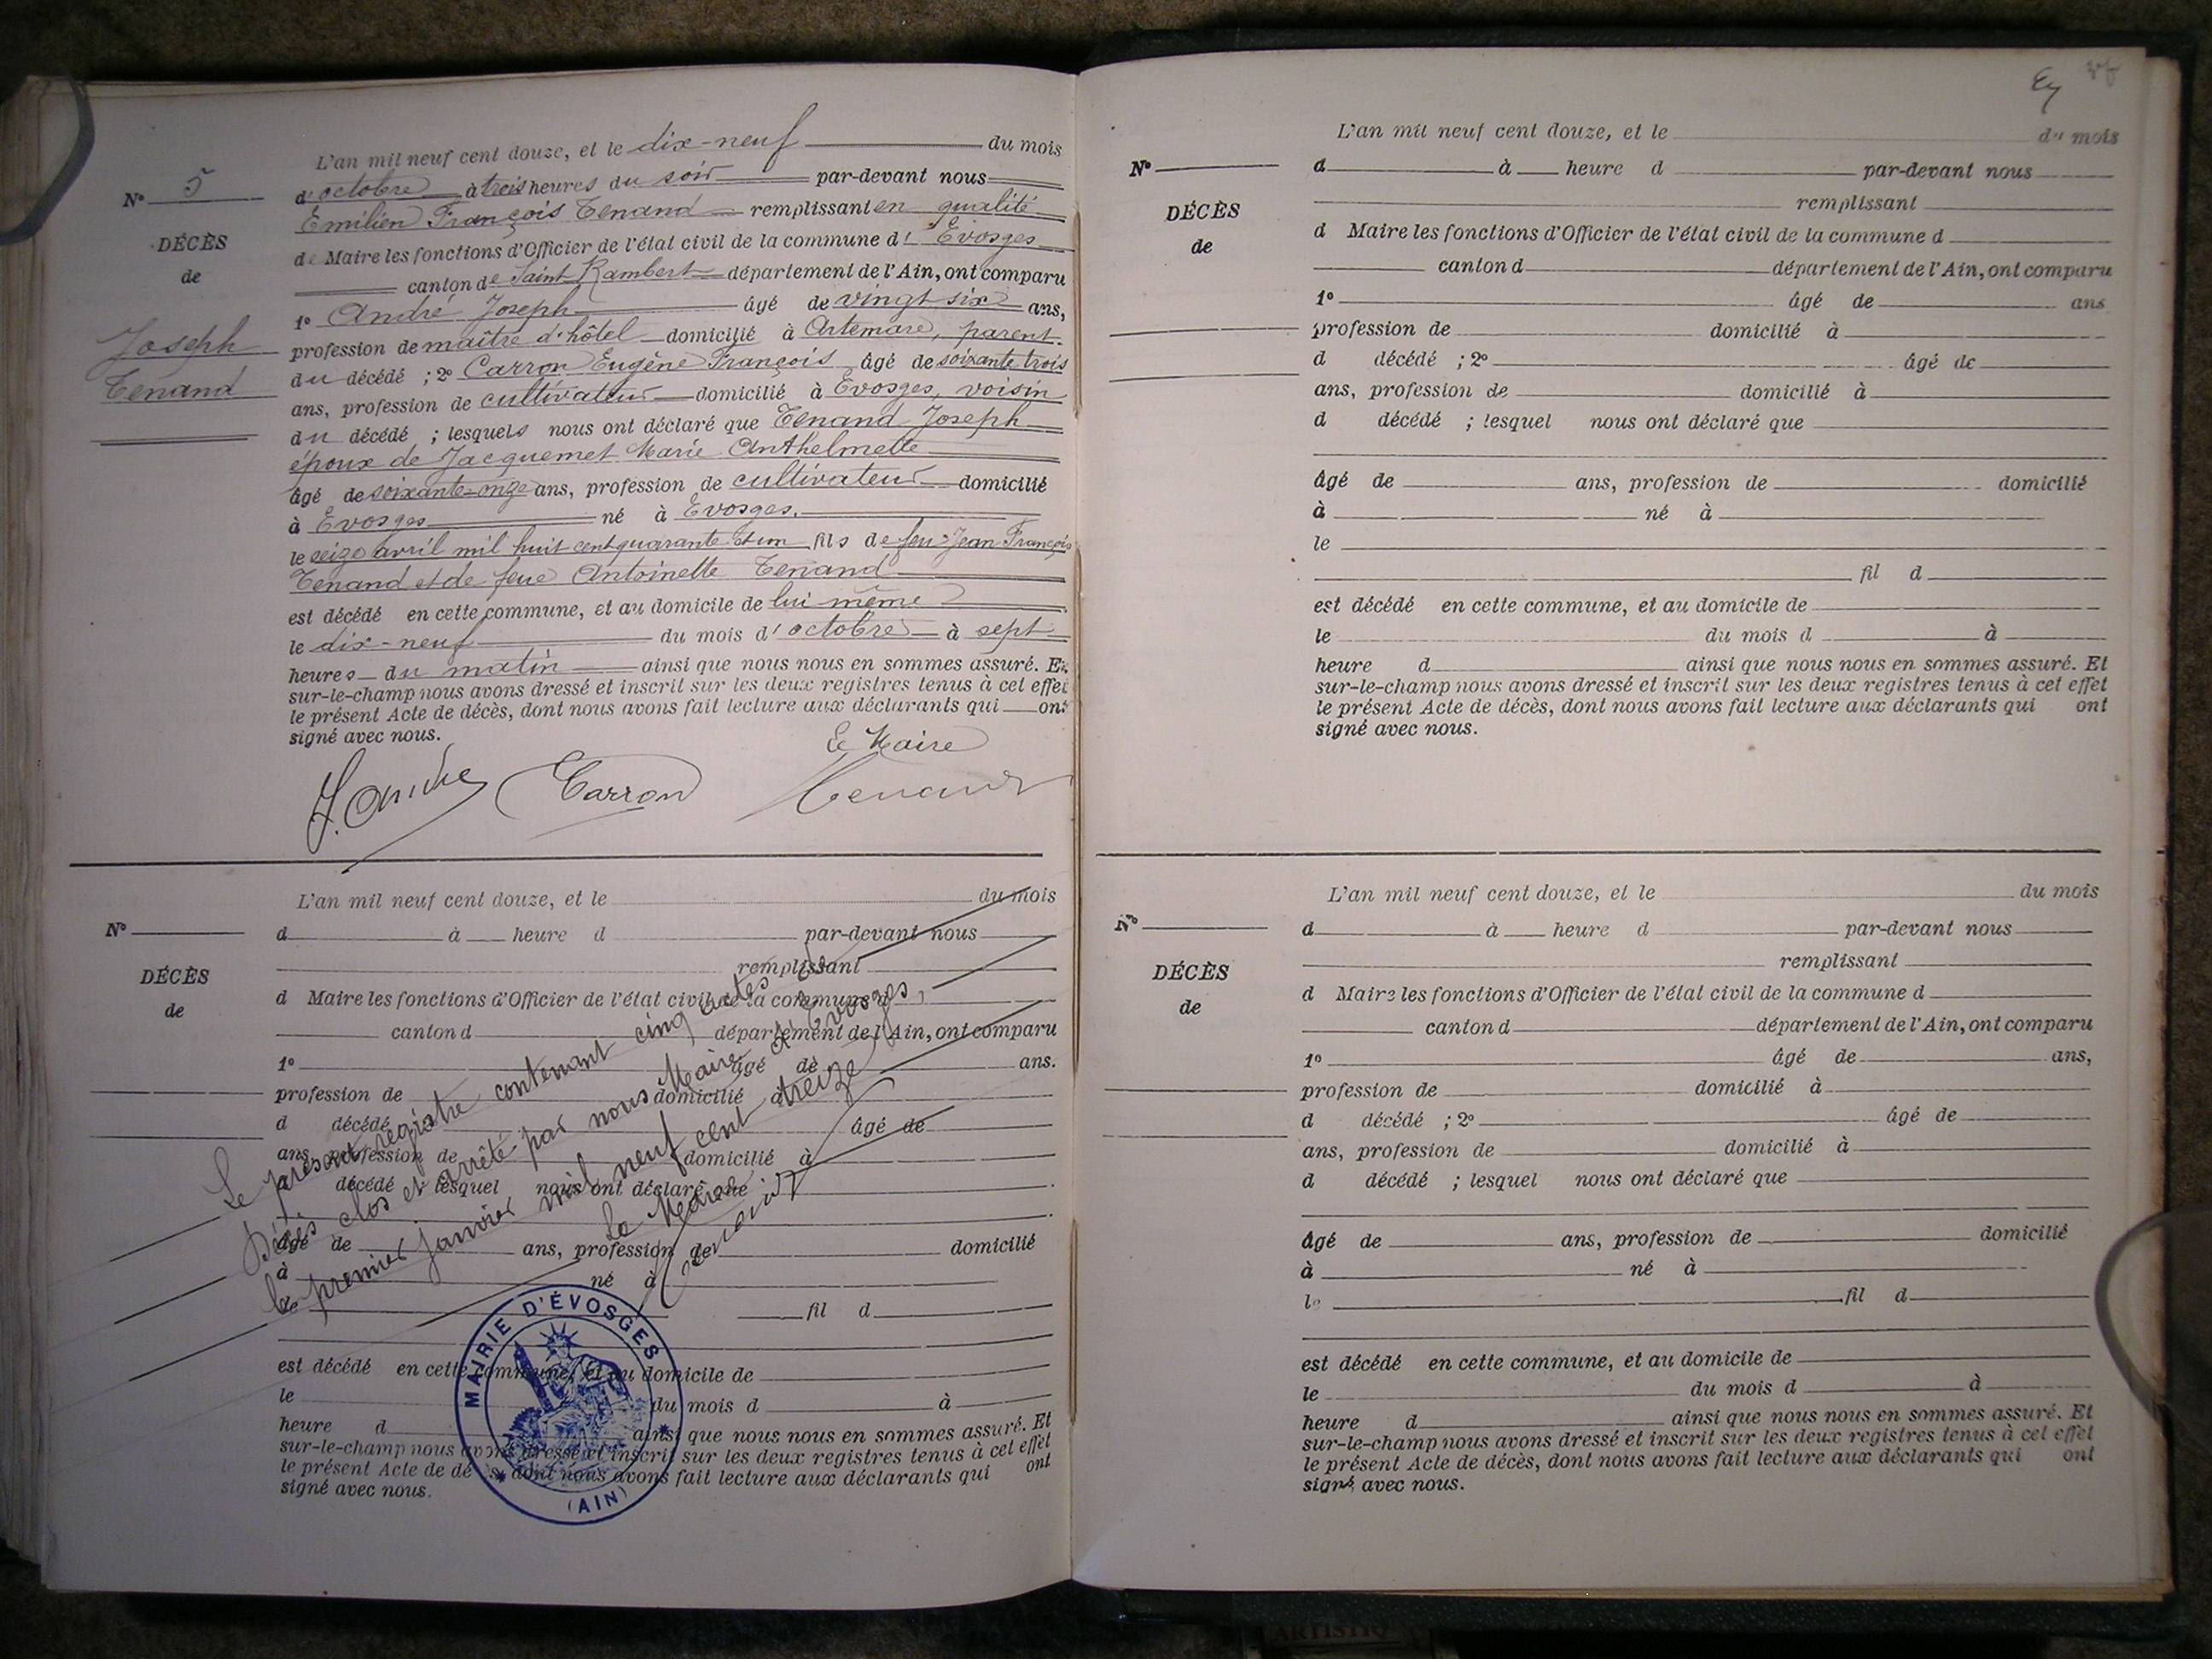 L'an mil neuf cent douze, et le dix-neuf du mois
N° 5
d'octobre à trois heures du soir par-devant nous
Émilien François Tenand remplissant en qualité
DÉCÈS
de Maire les fonctions d'Officier de l'état civil de la commune d'Évosges
de
canton de Saint Rambert département de l'Ain, ont comparu
1° André Joseph âgé de vingt six ans,
Joseph
profession de maître d'hôtel domicilié à Artemare, parent
du décédé ; 2° Carron Eugène François âgé de soixante trois
Tenand
ans, profession de cultivateur domicilié à Évosges, voisin
du décédé ; lesquels nous ont déclaré que Tenand Joseph
époux de Jacquemet Marie Anthelmette
âgé de soixante-onze ans, profession de cultivateur domicilié
à Évosges né à Évosges.
le seize avril mil huit cent quarante et un fils de feu Jean François
Tenand et de feue Antoinette Tenand
est décédé en cette commune, et au domicile de lui même
le dix-neuf du mois d'octobre à sept
heures du matin ainsi que nous nous en sommes assuré. Et
sur-le-champ nous avons dressé et inscrit sur les deux registres tenus à cet effet
le présent Acte de décès, dont nous avons fait lecture aux déclarants qui ont
signé avec nous.
Le Maire
J. André Carron Tenand
L'an mil neuf cent douze, et le du mois
N°
d à heure d par-devant nous
remplissant
DÉCÈS
d Maire les fonctions d'Officier de l'état civil de la commune d
de
canton d département de l'Ain, ont comparu
1° âgé de ans.
profession de domicilié à
d décédé âgé de
ans, profession de domicilié à
d décédé ; lesquel nous ont déclaré que
âgé de ans, profession de domicilié
à né à
le
fil d
est décédé en cette commune, et au domicile de
le du mois d à
heure d ainsi que nous nous en sommes assuré. Et
sur-le-champ nous avons dressé et inscrit sur les deux registres tenus à cet effet
le présent Acte de décès, dont nous avons fait lecture aux déclarants qui ont
signé avec nous.
Le présent registre contenant cinq actes de
Décès clos et arrêté par nous Maire d'Évosges,
le premier janvier mil neuf cent treize
Le Maire
Tenand
MAIRIE D'ÉVOSGES
(AIN)
L'an mil neuf cent douze, et le du mois
N°
d à heure d par-devant nous
remplissant
DÉCÈS
d Maire les fonctions d'Officier de l'état civil de la commune d
de
canton d département de l'Ain, ont comparu
1° âgé de ans
profession de domicilié à
d décédé ; 2° âgé de
ans, profession de domicilié à
d décédé ; lesquel nous ont déclaré que
âgé de ans, profession de domicilié
à né à
le
fil d
est décédé en cette commune, et au domicile de
le du mois d à
heure d ainsi que nous nous en sommes assuré. Et
sur-le-champ nous avons dressé et inscrit sur les deux registres tenus à cet effet
le présent Acte de décès, dont nous avons fait lecture aux déclarants qui ont
signé avec nous.
L'an mil neuf cent douze, et le du mois
N°
d à heure d par-devant nous
remplissant
DÉCÈS
d Maire les fonctions d'Officier de l'état civil de la commune d
de
canton d département de l'Ain, ont comparu
1° âgé de ans,
profession de domicilié à
d décédé ; 2° âgé de
ans, profession de domicilié à
d décédé ; lesquel nous ont déclaré que
âgé de ans, profession de domicilié
à né à
le fil d
est décédé en cette commune, et au domicile de
le du mois d à
heure d ainsi que nous nous en sommes assuré. Et
sur-le-champ nous avons dressé et inscrit sur les deux registres tenus à cet effet
le présent Acte de décès, dont nous avons fait lecture aux déclarants qui ont
signé avec nous.